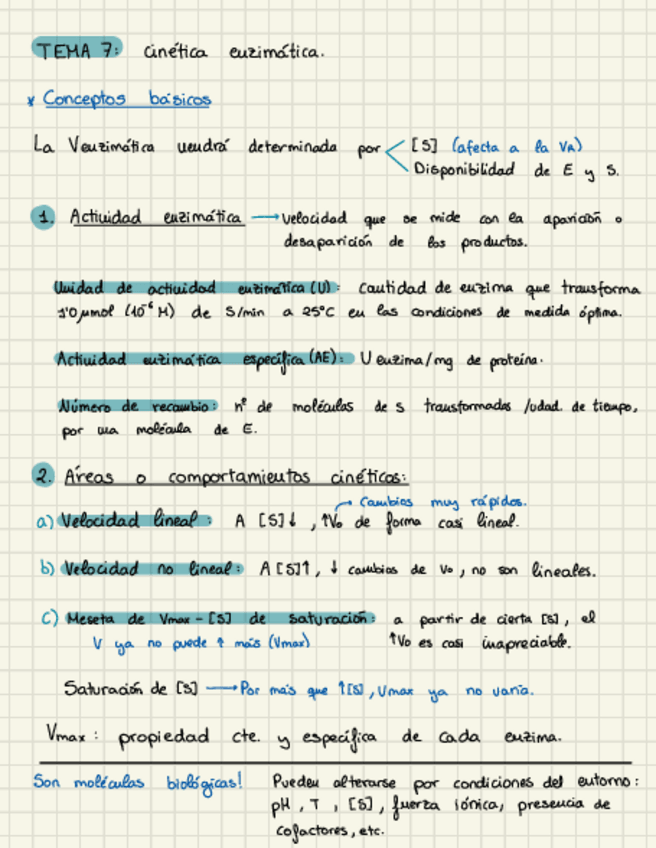 TEMA 7: cinética enzimática.
* Conceptos básicos
La Venzimática vendrá determinada por [S] (afecta a la VR)
Disponibilidad de E y S.
1. Actividad enzimática → velocidad que se mide con la aparición o
desaparición de los productos.
Unidad de actividad enzimática (U): Cantidad de enzima que transforma
1'0 μmol (10⁻⁶ M) de S/min a 25°C en las condiciones de medida óptima.
Actividad enzimática específica (AE): U enzima/mg de proteína.
Número de recambio: nº de moléculas de S transformadas /udad. de tiempo,
por una molécula de E.
2. Áreas o comportamientos cinéticos:
→ Cambios muy rápidos.
a) Velocidad lineal: A [S]↓, ↑V₀ de forma casi lineal.
b) Velocidad no lineal: A [S]↑, ↓ cambios de V₀, no son lineales.
c) Meseta de Vmax - [S] de saturación: a partir de cierta [S], el
V ya no puede ↑ más (Vmax) ↑V₀ es casi inapreciable.
Saturación de [S] → Por más que ↑[S], Vmax ya no varía.
Vmax: propiedad cte. y específica de cada enzima.
Son moléculas biológicas! Pueden alterarse por condiciones del entorno:
pH, T, [S], fuerza iónica, presencia de
cofactores, etc.